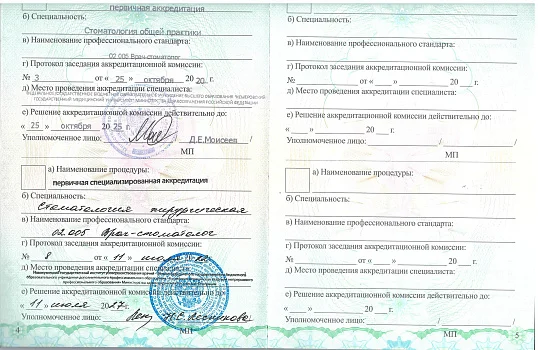 первичная аккредитация
б) Специальность:
Стоматология общей практики
в) Наименование профессионального стандарта:
02.005 Врач-стоматолог
г) Протокол заседания аккредитационной комиссии:
№ 3 от « 25 » октября 20 20 г.
д) Место проведения аккредитации специалиста:
е) Решение аккредитационной комиссии действительно до:
« 25 » октября 20 25 г.
Уполномоченное лицо: / Д.Е.Моисеев /
МП
а) Наименование процедуры:
первичная специализированная аккредитация
б) Специальность:
Стоматология хирургическая
в) Наименование профессионального стандарта:
02.005 Врач-стоматолог
г) Протокол заседания аккредитационной комиссии:
№ 8 от « 11 » июля 20 г.
д) Место проведения аккредитации специалиста:
е) Решение аккредитационной комиссии действительно до:
« 11 » июля 20 г.
Уполномоченное лицо:
МП
4
б) Специальность:
в) Наименование профессионального стандарта:
г) Протокол заседания аккредитационной комиссии:
№ от « » 20 г.
д) Место проведения аккредитации специалиста:
е) Решение аккредитационной комиссии действительно до:
« » 20 г.
Уполномоченное лицо: / /
МП
а) Наименование процедуры:
б) Специальность:
в) Наименование профессионального стандарта:
г) Протокол заседания аккредитационной комиссии:
№ от « » 20 г.
д) Место проведения аккредитации специалиста:
е) Решение аккредитационной комиссии действительно до:
« » 20 г.
Уполномоченное лицо: / /
МП
5